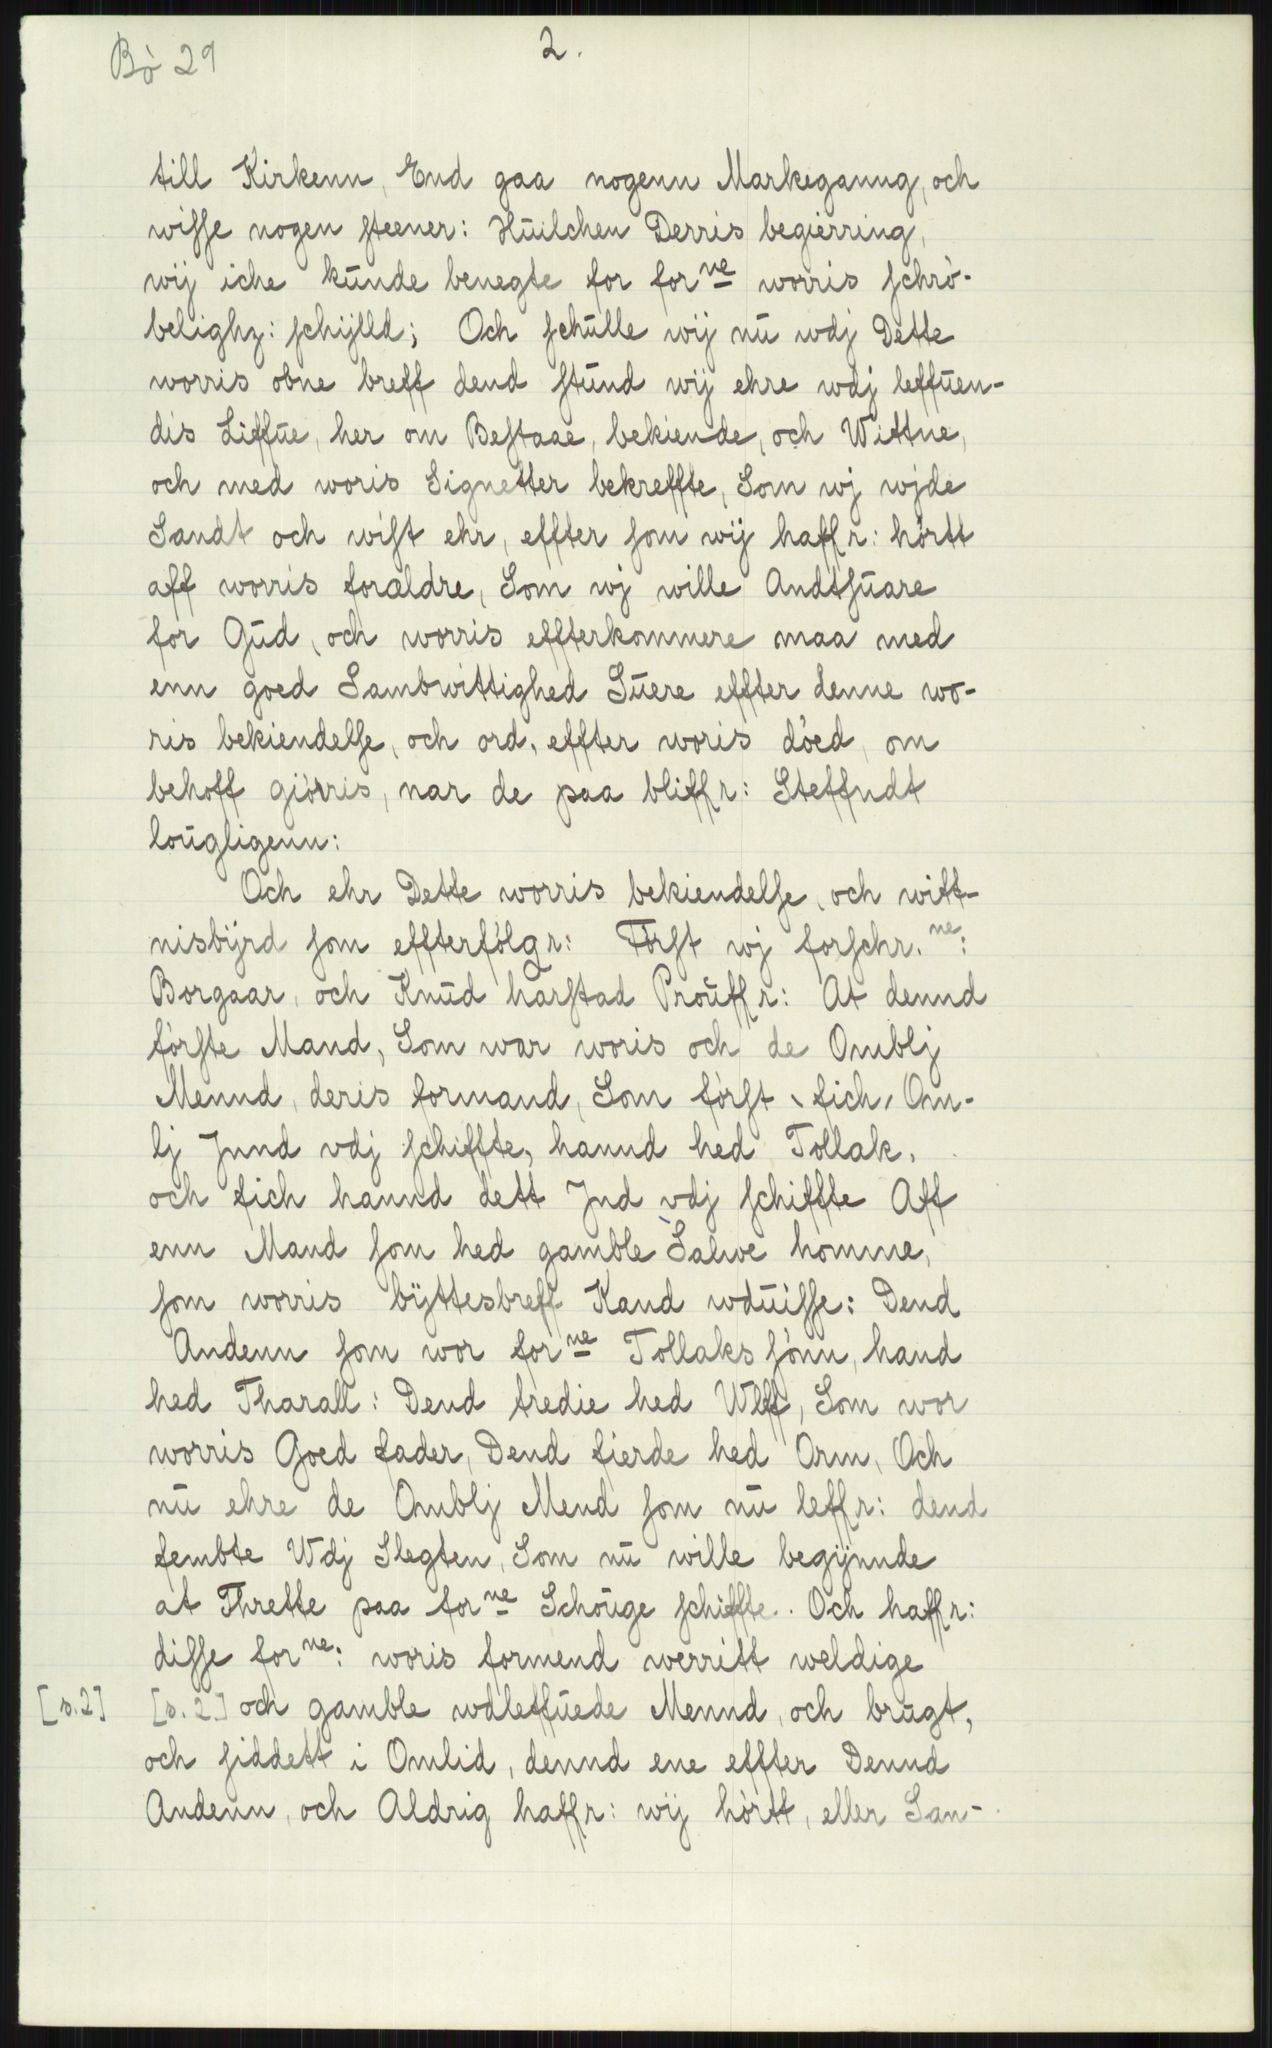 Bö 29
2.
till Kirkenn, End gaa nogenn Markeganng, och
wisse nogen steener: Huilchen Derris begierring,
wij iche kunde benegte for forne worris schrö-
belighz: schijlld; Och schulle wij nu wdj Dette
worris obne breff dend stund wij ehre wdj leffuen-
dis Liffue, her om Bestaae, bekiende, och Wittne,
och med woris Signetter bekreffte, Som wj wjde
Sandt och wist ehr, effter som wij haffr: hörtt
aff worris forældre, Som wj wille Andtsuare
for Gud, och worris effterkommere maa med
enn goed Sambwittighed Suere effter denne wo-
ris bekiendelse, och ord, effter woris döed, om
behoff giörris, nar de paa bliffr: Steffndt
lougligenn:
Och ehr Dette worris bekiendelse, och witt-
nisbijrd som effterfölgr: Först wj forschr.ne:
Borgaar, och Knud harstad Prouffr: At dennd
förste Mand, Som war woris och de Omblj
Mennd, deris formand, Som först, fich, Om-
lj Jnnd vdj schiffte, hannd hed Tollak,
och fich hannd dett Jnd vdj schiffte Aff
enn Mand som hed gamble Salwe homme,
som worris bÿttesbreff Kand wduisse: Dend
Andenn som wor forne Tollaks sönn, hand
hed Tharall: Dend tredie hed Wlff, Som wor
worris Goed fader, Dend fierde hed Orm, Och
nu ehre de Omblj Mend som nu leffr: dend
fembte Wdj Slegten, Som nu wille begijnnde
at Thrette paa forne Schouge schiffte. Och haffr:
disse forne: woris formend werritt weldige
[s.2] [s. 2.] och gamble wdleffuede Mennd, och brugt,
och siddett i Omlid, dennd ene effter Dennd
Andenn, och Aldrig haffr: wij hörtt, eller San-